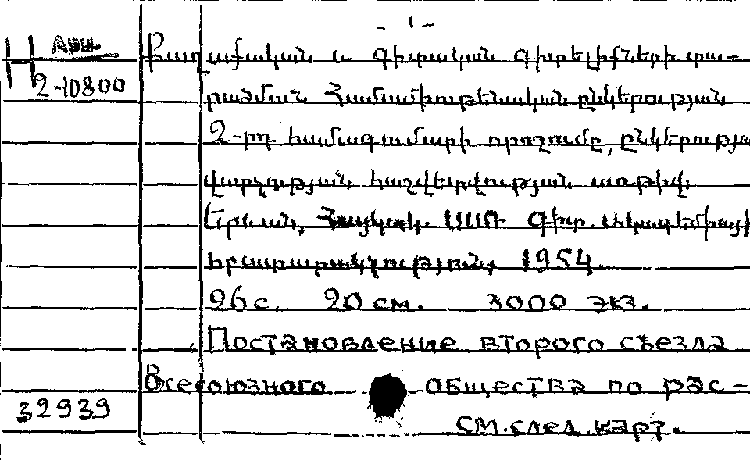 - 1 -
Н Арм. Քաղաքական և գիտական գիտելիքների տա-
2-10800 րածման Համամիութենական ընկերության
2-րդ համագումարի որոշումը, ընկերության
վարչության հաշվետվության առթիվ.
Երևան, Հայկակ. ՍՍՌ գիտ.
հրատարակչություն, 1954.
26 с. 20 см. 3000 экз.
Постановление второго съезда
Всесоюзного общества по рас-
32939
см. след. карт.